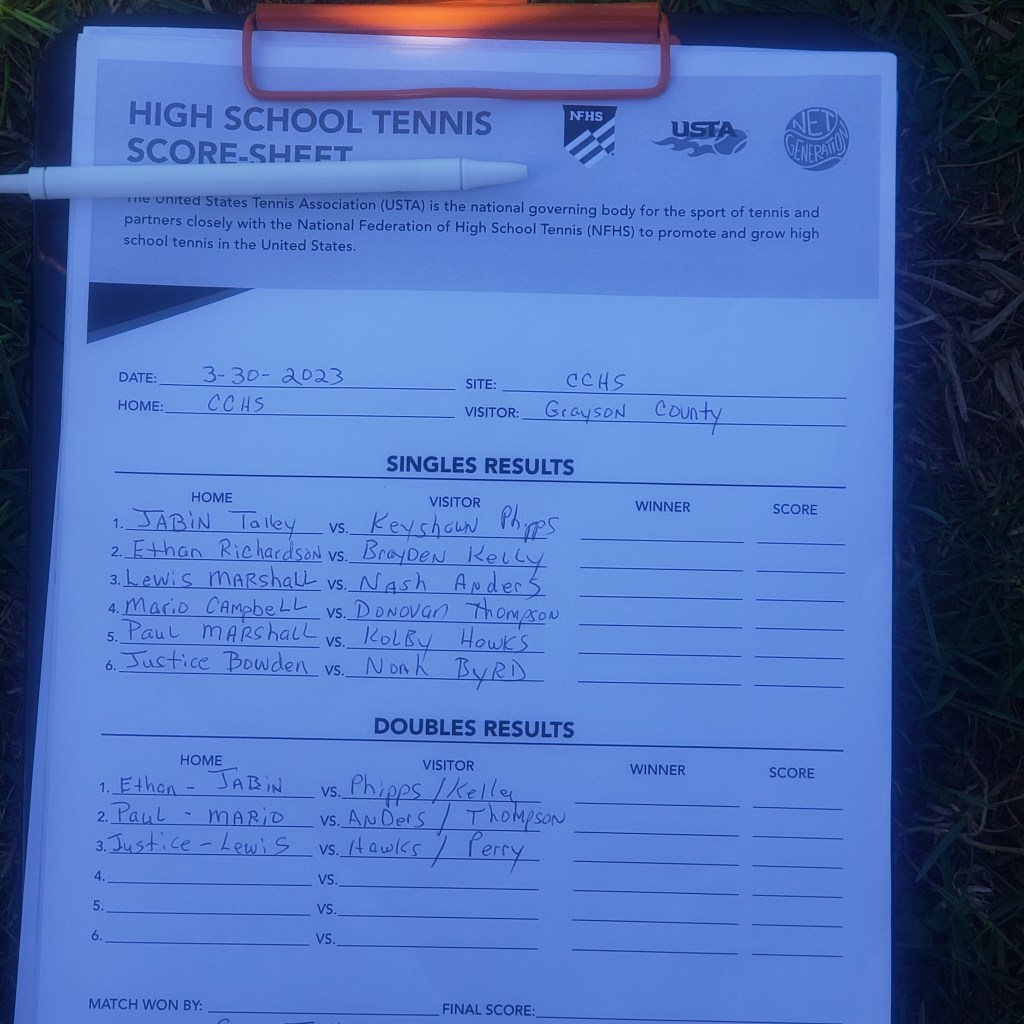 HIGH SCHOOL TENNIS
SCORE-SHEET
NFHS
USTA
NET GENERATION
The United States Tennis Association (USTA) is the national governing body for the sport of tennis and
partners closely with the National Federation of High School Tennis (NFHS) to promote and grow high
school tennis in the United States.
DATE: 3-30-2023 SITE: CCHS
HOME: CCHS VISITOR: Grayson County
SINGLES RESULTS
HOME VISITOR WINNER SCORE
1. JABiN Talley vs. Keyshawn Phipps
2. Ethan Richardson vs. BrayDEN KeLLy
3. Lewis MARshaLL vs. NAsh AnderS
4. Mario CAMpbeLL vs. DONOVan Thompson
5. PauL MARshall vs. KOLBy Hawks
6. Justice Bowden vs. NoAh ByRD
DOUBLES RESULTS
HOME VISITOR WINNER SCORE
1. Ethan - JABiN vs. Phipps / Kelley
2. PauL - MARiO vs. ANDers / ThOMpsoN
3. Justice - Lewis vs. Hawks / Perry
4. vs.
5. vs.
6. vs.
MATCH WON BY: FINAL SCORE: